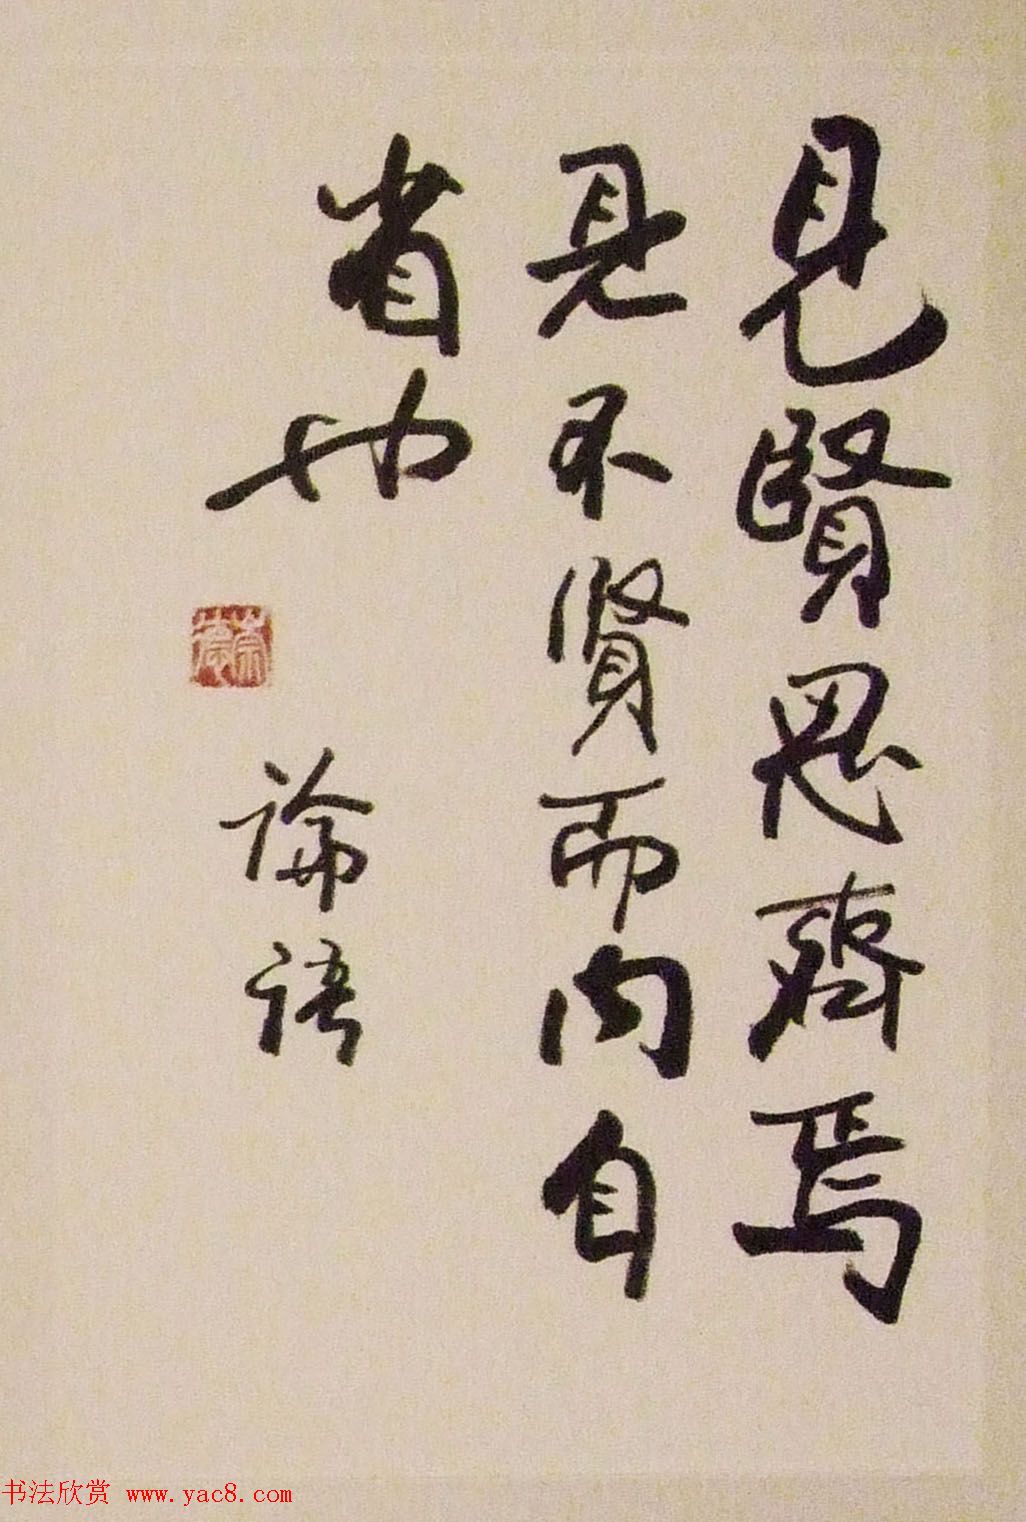 見賢思齊焉
見不賢而内自
省也
論語
书法欣赏 www.yac8.com